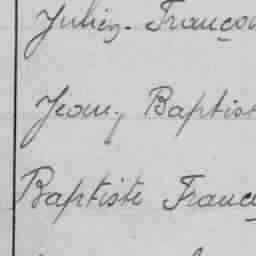 Julien - Françoi
Jean, Baptist
Baptiste Franç